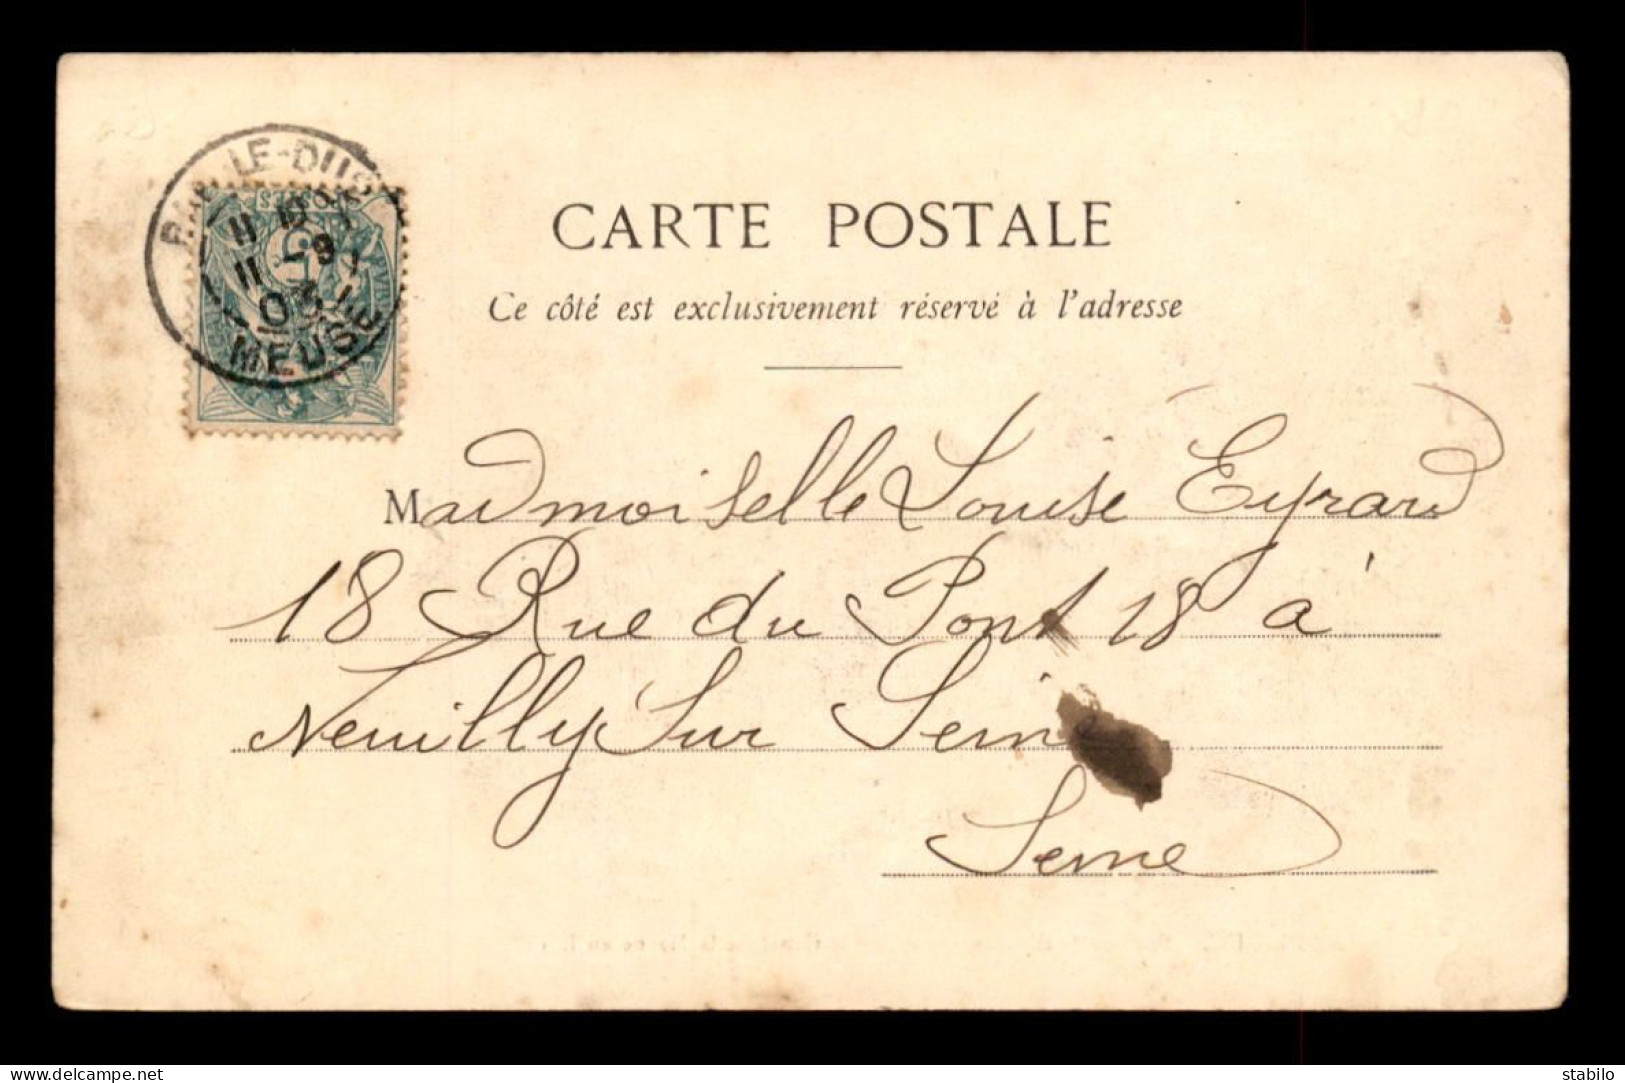 BAR-LE-DUC
11 11 -9 03
MEUSE
CARTE POSTALE
Ce côté est exclusivement réservé à l'adresse
Mademoiselle Louise Eyraud
18 Rue du Pont 18 à
Neuilly Sur Seine
Seine
stabilo